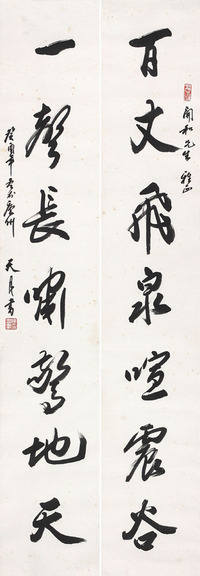 百丈飛泉喧震谷
開和先生雅正
一聲長嘯驚地天
癸酉年
天月書